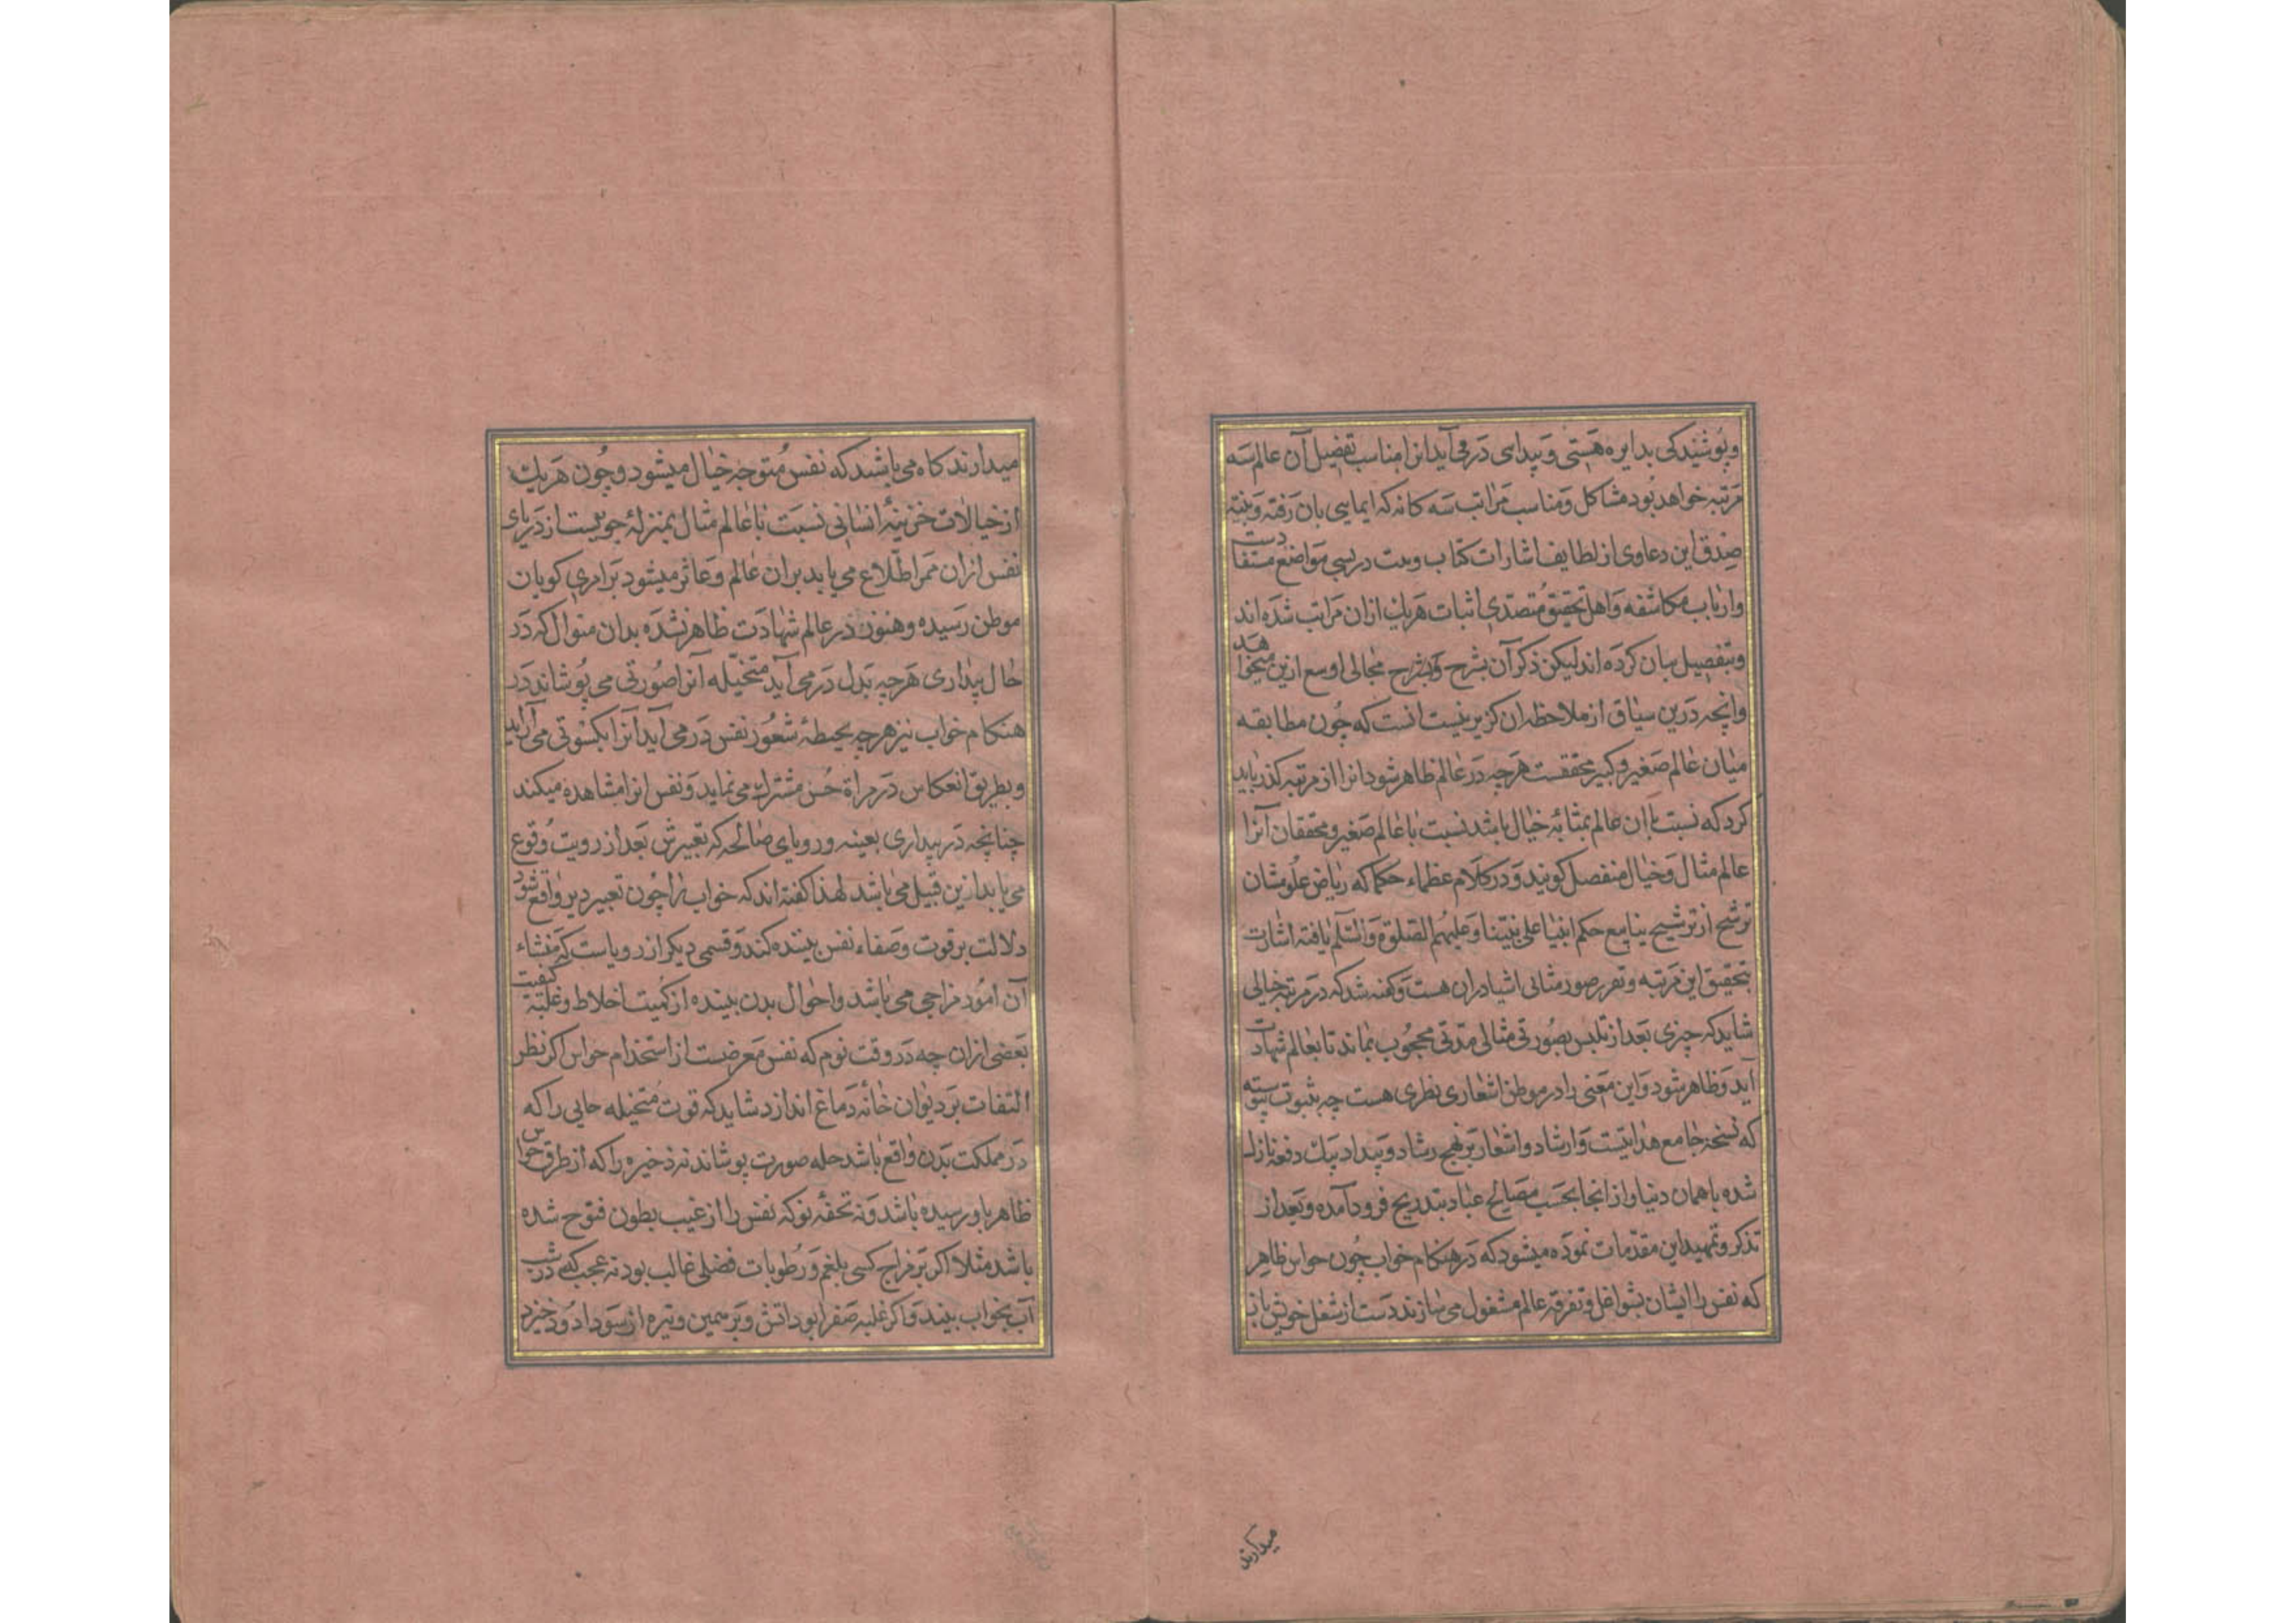 وپوشیدکی بدایره هستی و پیدایی در می آید انرا مناسب تفصیل آن عالم سه
مرتبه خواهد بود مشاکل و مناسب مراتب سه کانه که ایمایی بان رفته و بینه
صدق این دعاوی از لطایف اشارات کتاب و سنت در بسی مواضع مستفادست
وارباب مکاشفه و اهل تحقیق متصدی اثبات هریك ازان مراتب شده اند
وبتفصیل بیان کرده اند لیکن ذکر آن بشرح مجالی اوسع ازین میخواهد
وانچه درین سیاق از ملاحظه ان کزیر نیست انست که چون مطابقه
میان عالم صغیر و کبیر محققست هرچه در عالم ظاهر شود انرا از مرتبه کذر باید
کرد که نسبت با ان عالم بمثابه خیال باشد نسبت با عالم صغیر و محققان آنرا
عالم مثال و خیال منفصل کویند و در کلام عظماء حکما که ریاض علومشان
ترشح از ترشیح ینابیع حکم انبیا علی نبینا و علیهم الصلوة والسلم یافته اشارت
بتحقیق این مرتبه و تقرر صور مثالی اشیا دران هست و کفته شد که در مرتبه خیالی
شاید که چیزی بعد از تلبس بصورتی مثالی مدتی محجوب بماند تا بعالم شهادت
آید و ظاهر شود و این معنی را در موطن اشعاری نظری هست چه بثبوت پیوسته
که نسخه جامع هدایتست و ارشاد و اشعار بر نهج رشاد و پیداد بیك دفعه نازل
شده باسمان دنیا و از انجا بحسب مصالح عباد بتدریج فرود آمده و بعد از
تذکر و تمهید این مقدمات نموده میشود که در هنکام خواب چون حواس ظاهر
که نفس را ایشان بشواغل و تفرقه عالم مشغول می سازند دست از شغل خویش باز
میدارند
میدارند کاه می باشد که نفس متوجه خیال میشود و چون هریك
از خیالات خزینهٔ انسانی نسبت با عالم مثال بمنزلهٔ جوییست از دریای
نفس ازان ممر اطلاع می یابد بران عالم و عاثر میشود بر امری کو بان
موطن رسیده و هنوز در عالم شهادت ظاهر نشده بدان منوال که در
حال بیداری هرچه بدل در می آید متخیله آنرا صورتی می پوشاند در
هنکام خواب نیز هرچه بحیطهٔ شعور نفس در می آید آنرا بکسوتی می آراید
وبطریق انعکاس در مراة حس مشترك می نماید و نفس انرا مشاهده میکند
چنانچه در بیداری بعینه و رویای صالحه که تعبیرش بعد از رویت وقوع
می یابد ازین قبیل می باشد لهذا کفته اند که خواب را چون تعبیر دیر واقع شود
دلالت بر قوت و صفاء نفس بیننده کند و قسمی دیکر از رویاست که منشاء
آن امور مزاجی می باشد و احوال بدن بیننده از کمیت اخلاط و غلبه کیفیت
بعضی ازان چه در وقت نوم که نفس معرضست از استخدام حواس اکر نظر
التفات بر دیوان خانهٔ دماغ اندازد شاید که قوت متخیله حالی را که
در مملکت بدن واقع باشد حله صورت پوشاند نه ذخیره را که از طرق حواس
ظاهر باو رسیده باشد و نه تحفهٔ نو که نفس را از غیب بطون فتوح شده
باشد مثلا اکر بر مزاج کسی بلغم و رطوبات فضلی غالب بود نه عجب که در شب
آب بخواب بیند و اکر غلبه صفرا بود اتش و برسمین و تیره از سودا دود خیزد